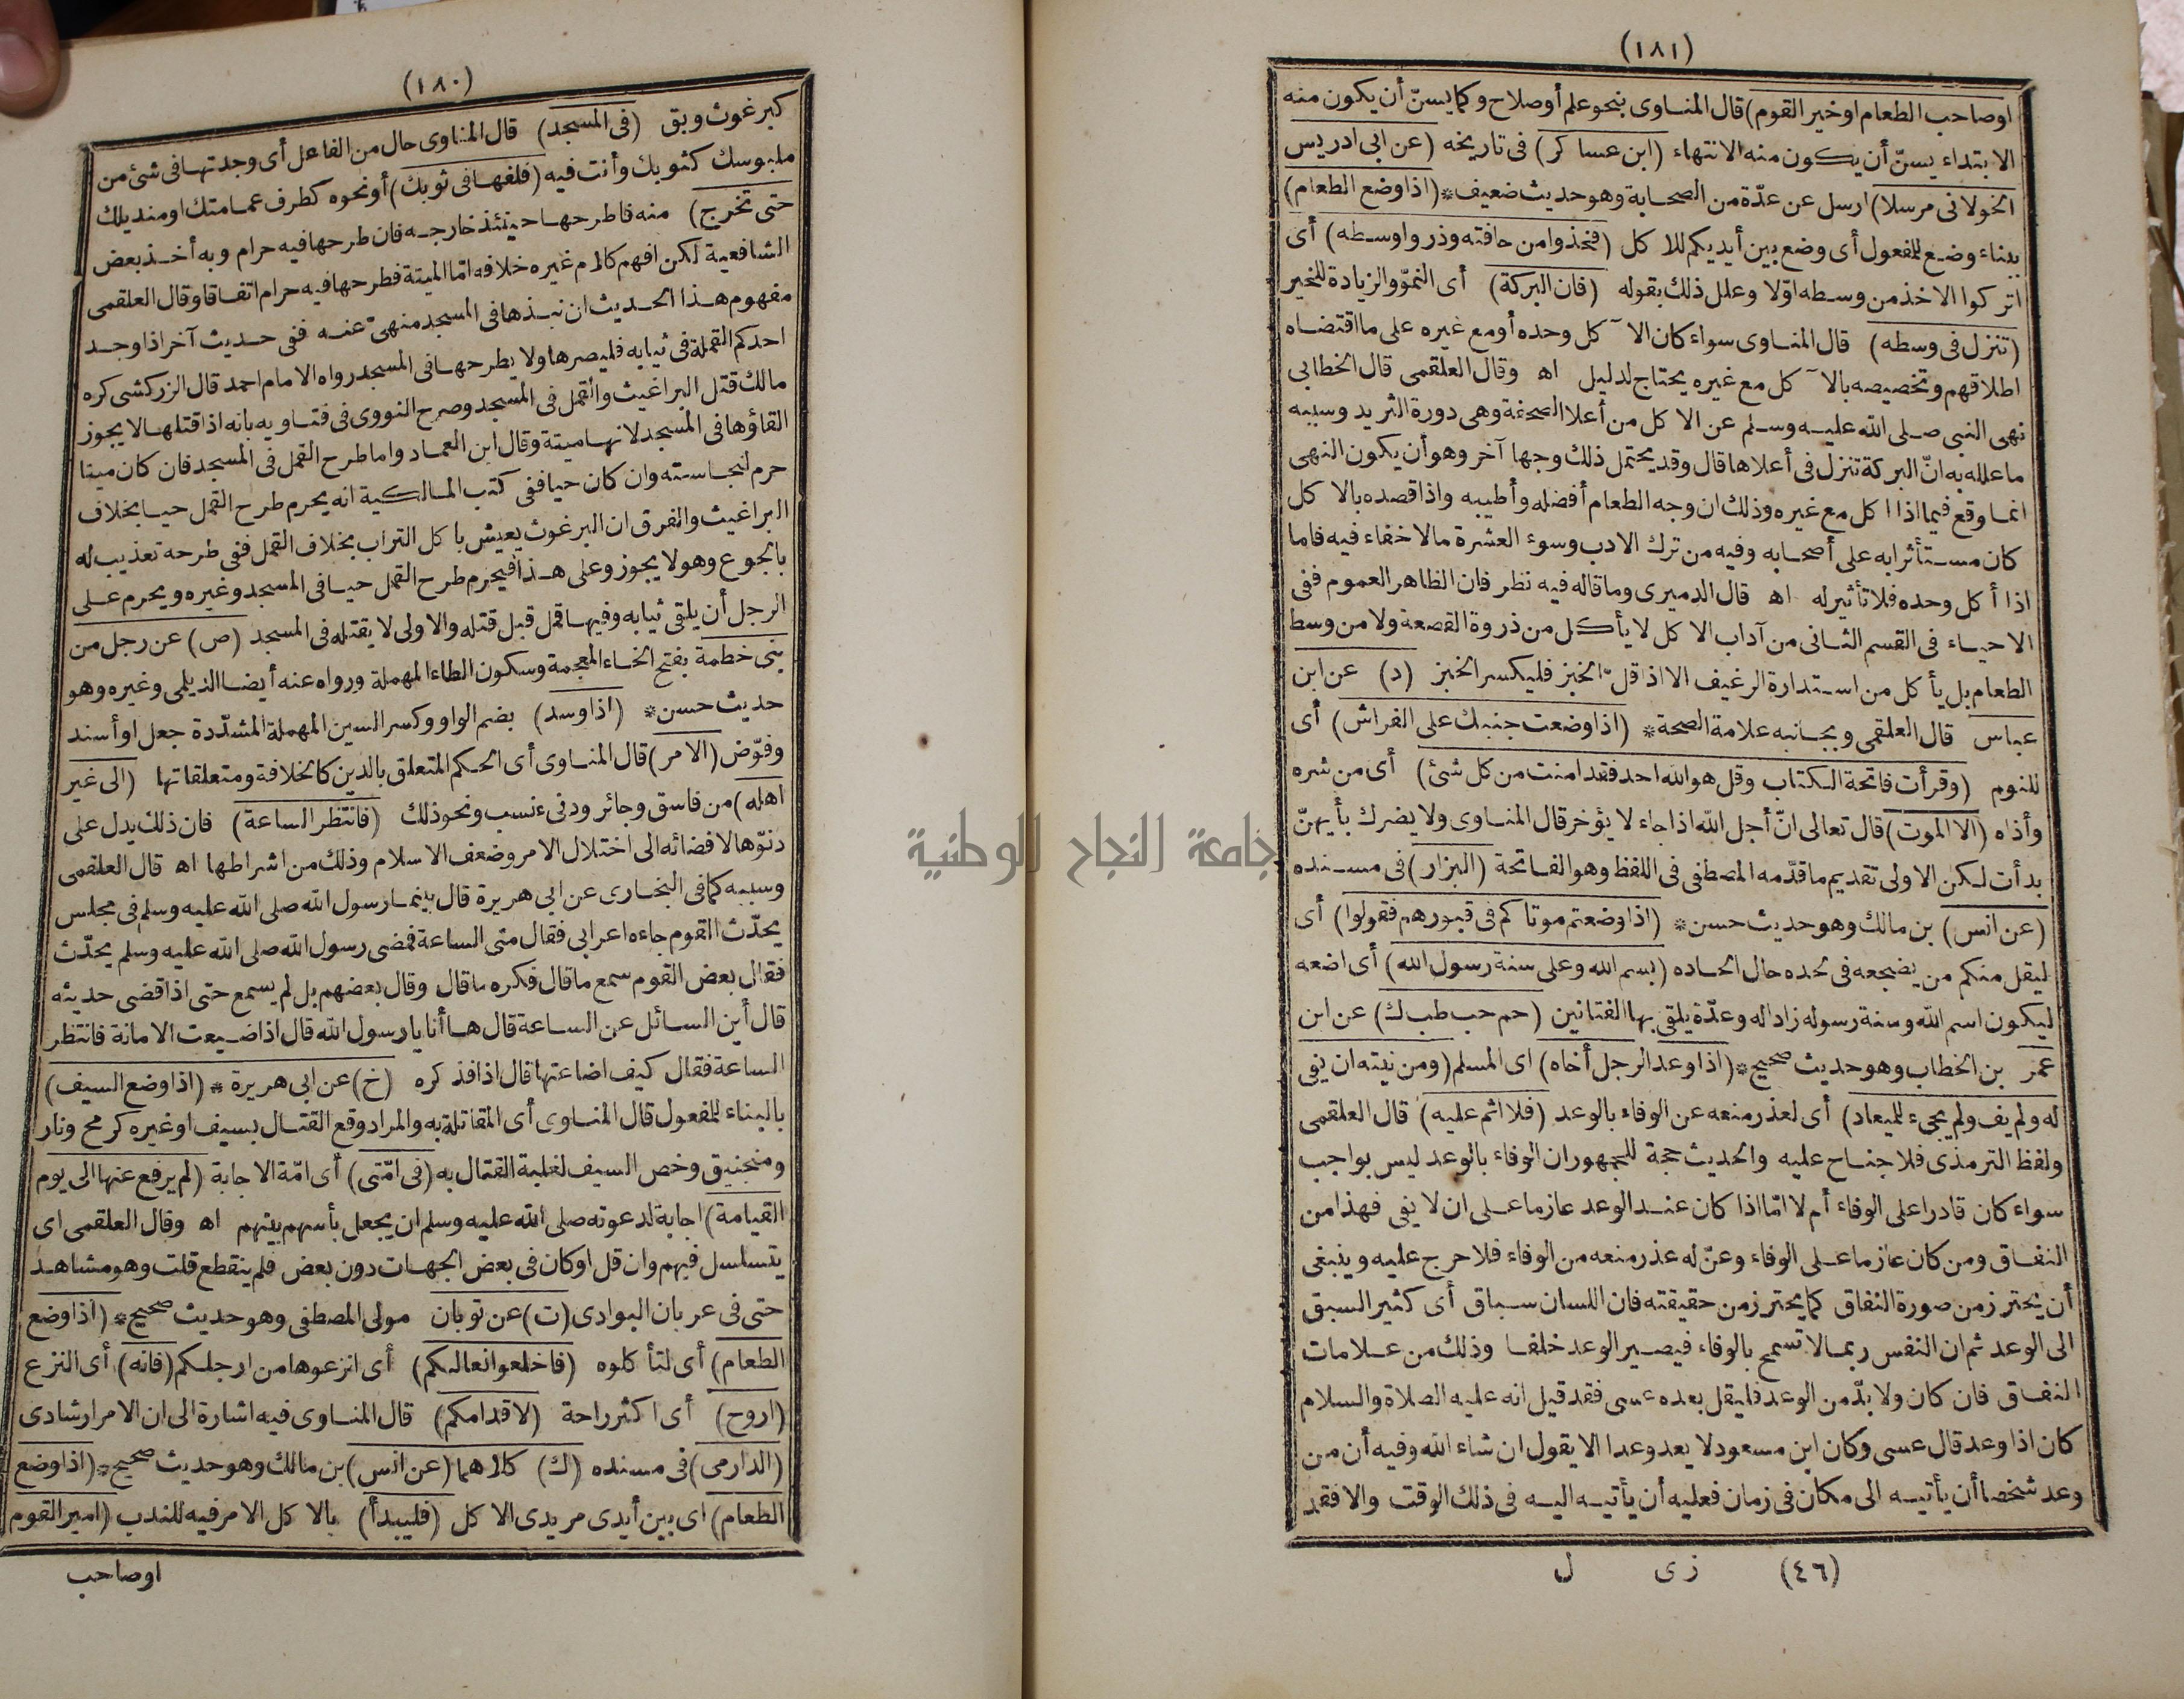 (١٨٠)
كبرغوث وبق (فى المسجد) قال المناوى حال من الفاعل أى وجدتها فى شئ من
ملبوسك كثوبك وأنت فيه (فلفها فى ثوبك) أو نحوه كطرف عمامتك او منديلك
حتى تخرج) منه فاطرحها حينئذ خارجه فان طرحها فيه حرام وبه أخذ بعض
الشافعية لكن افهم كلام غيره خلافه امّا الميتة فطرحها فيه حرام اتفاقا وقال العلقمى
مفهوم هذا الحديث ان نبذها فى المسجد منهىّ عنه ففى حديث آخر اذا وجد
احدكم القملة فى ثيابه فليصرها ولا يطرحها فى المسجد رواه الامام احمد قال الزركشى كره
مالك قتل البراغيث والقمل فى المسجد وصرح النووى فى فتاويه بانه اذا قتلها لا يجوز
القاؤها فى المسجد لانها ميتة وقال ابن العماد واما طرح القمل فى المسجد فان كان ميتا
حرم لنجاسته وان كان حيا ففى كتب المالكية انه يحرم طرح القمل حيا بخلاف
البراغيث والفرق ان البرغوث يعيش با كل التراب بخلاف القمل ففى طرحه تعذيب له
بالجوع وهو لا يجوز وعلى هذا فيحرم طرح القمل حيا فى المسجد وغيره ويحرم على
الرجل أن يلقى ثيابه وفيها قمل قبل قتله والاولى لا يقتله فى المسجد (ص) عن رجل من
بنى خطمة بفتح الخاء المعجمة وسكون الطاء المهملة ورواه عنه أيضا الديلمى وغيره وهو
حديث حسن * (اذا وسد) بضم الواو وكسر السين المهملة المشدّدة جعل او أسند
وفوّض (الامر) قال المناوى أى الحكم المتعلق بالدين كالخلافة ومتعلقاتها (الى غير
اهله) من فاسق وجائر ودنىء نسب ونحو ذلك (فانتظر الساعة) فان ذلك يدل على
دنوّها لافضائه الى اختلال الامر وضعف الاسلام وذلك من اشراطها اه قال العلقمى
وسببه كما فى البخارى عن ابى هريرة قال بينما رسول الله صلى الله عليه وسلم فى مجلس
يحدّث القوم جاءه اعرابى فقال متى الساعة فمضى رسول الله صلى الله عليه وسلم يحدّث
فقال بعض القوم سمع ما قال فكره ما قال وقال بعضهم بل لم يسمع حتى اذا قضى حديثه
قال أين السائل عن الساعة قال ها أنا يا رسول الله قال اذا ضيعت الامانة فانتظر
الساعة فقال كيف اضاعتها قال اذا فذكره (خ) عن ابى هريرة * (اذا وضع السيف)
بالبناء للمفعول قال المناوى أى المقاتلة به والمراد وقع القتال بسيف او غيره كرمح ونار
ومنجنيق وخص السيف لغلبة القتال به (فى امّتى) أى امّة الاجابة (لم يرفع عنها الى يوم
القيامة) اجابة لدعوته صلى الله عليه وسلم ان يجعل بأسهم بينهم اه وقال العلقمى اى
يتسلسل فيهم وان قل او كان فى بعض الجهات دون بعض فلم ينقطع قلت وهو مشاهد
حتى فى عربان البوادى (ت) عن ثوبان مولى المصطفى وهو حديث صحيح * (اذا وضع
الطعام) أى لتأ كلوه (فاخلعوا نعالكم) أى انزعوها من ارجلكم (فانه) أى النزع
(اروح) أى اكثر راحة (لاقدامكم) قال المناوى فيه اشارة الى ان الامر ارشادى
(الدارمى) فى مسنده (ك) كلاهما (عن انس) بن مالك وهو حديث صحيح * (اذا وضع
الطعام) اى بين أيدى مريدى الا كل (فليبدأ) بالا كل الامر فيه للندب (امير القوم
اوصاحب
(١٨١)
اوصاحب الطعام اوخير القوم) قال المناوى بنحو علم أو صلاح وكما يسنّ أن يكون منه
الابتداء يسنّ أن يكون منه الانتهاء (ابن عساكر) فى تاريخه (عن ابى ادريس
الخولانى مرسلا) ارسل عن عدّة من الصحابة وهو حديث ضعيف * (اذا وضع الطعام)
ببناء وضع للمفعول أى وضع بين أيديكم للا كل (فخذوا من حافته وذروا وسطه) أى
اتركوا الاخذ من وسطه اوّلا وعلل ذلك بقوله (فان البركة) أى النموّ والزيادة للخير
(تنزل فى وسطه) قال المناوى سواء كان الآ كل وحده أو مع غيره على ما اقتضاه
اطلاقهم وتخصيصه بالآ كل مع غيره يحتاج لدليل اه وقال العلقمى قال الخطابى
نهى النبى صلى الله عليه وسلم عن الا كل من أعلا الصحفة وهى دورة الثريد وسببه
ما علله به انّ البركة تنزل فى أعلاها قال وقد يحتمل ذلك وجها آخر وهو أن يكون النهى
انما وقع فيما اذا ا كل مع غيره وذلك ان وجه الطعام أفضله وأطيبه واذا قصده بالا كل
كان مستأثرا به على أصحابه وفيه من ترك الادب وسوء العشرة مالا خفاء فيه فاما
اذا أ كل وحده فلا تأثير له اه قال الدميرى وما قاله فيه نظر فان الظاهر العموم ففى
الاحياء فى القسم الثانى من آداب الا كل لا يأ كل من ذروة القصعة ولا من وسط
الطعام بل يأ كل من استدارة الرغيف الا اذا قلّ الخبز فليكسر الخبز (د) عن ابن
عباس قال العلقمى وبجانبه علامة الصحة * (اذا وضعت جنبك على الفراش) أى
للنوم (وقرأت فاتحة الكتاب وقل هو الله احد فقد امنت من كل شئ) أى من شره
وأذاه (الا الموت) قال تعالى انّ أجل الله اذا جاء لا يؤخر قال المناوى ولا يضرك بأيهنّ
بدأت لكن الاولى تقديم ما قدّمه المصطفى فى اللفظ وهو الفاتحة (البزار) فى مسنده
(عن انس) بن مالك وهو حديث حسن * (اذا وضعتم موتاكم فى قبورهم فقولوا) أى
ليقل منكم من يضجعه فى لحده حال الحاده (بسم الله وعلى سنة رسول الله) أى اضعه
ليكون اسم الله وسنة رسوله زادا له وعدّة يلقى بها الفتانين (حم حب طب ك) عن ابن
عمر بن الخطاب وهو حديث صحيح * (اذا وعد الرجل أخاه) اى المسلم (ومن نيته ان يفى
له ولم يف ولم يجىء للميعاد) أى لعذر منعه عن الوفاء بالوعد (فلا اثم عليه) قال العلقمى
ولفظ الترمذى فلا جناح عليه والحديث حجة للجمهور ان الوفاء بالوعد ليس بواجب
سواء كان قادرا على الوفاء أم لا امّا اذا كان عند الوعد عازما على ان لا يفى فهذا من
النفاق ومن كان عازما على الوفاء وعنّ له عذر منعه من الوفاء فلا حرج عليه وينبغى
أن يحترز من صورة النفاق كما يحترز من حقيقته فان اللسان سباق أى كثير السبق
الى الوعد ثم ان النفس ربما لا تسمح بالوفاء فيصير الوعد خلفا وذلك من علامات
النفاق فان كان ولا بدّ من الوعد فليقل بعده عسى فقد قيل انه عليه الصلاة والسلام
كان اذا وعد قال عسى وكان ابن مسعود لا يعد وعدا الا يقول ان شاء الله وفيه أن من
وعد شخصا أن يأتيه الى مكان فى زمان فعليه أن يأتيه اليه فى ذلك الوقت والا فقد
(٤٦) زى ل
جامعة النجاح الوطنية